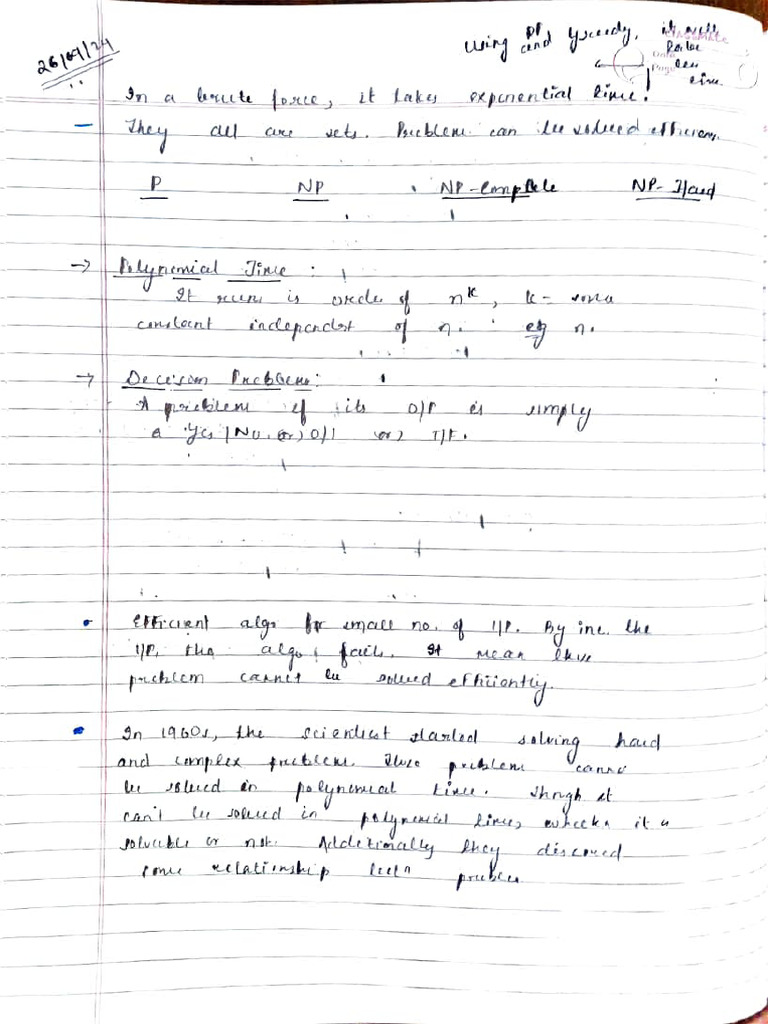 26/09/24
Using DP and Greedy, it will
CLASSMATE
Date
Page
time.
In a brute force, it takes exponential time.
They all are sets. Problem can be solved efficien
P NP NP-Complete NP-Hard
→ Polynomial Time :
It runs is order of n^k, k = some
constant independent of n. eg n.
→ Decision Problem:
A problem if its O/P is simply
a Yes/No (or) 0/1 or) T/F.
Efficient algo for small no. of I/P. By inc. the
I/P, the algo fails. It mean
problem cannot be solved efficiently.
In 1960s, the scientist started solving hard
and complex problem. problem canno
be solved in polynomial time. Thogh it
can't be solved in polynomial time, it is
solvable or not. Additionally they discoved
some relationship betn problem